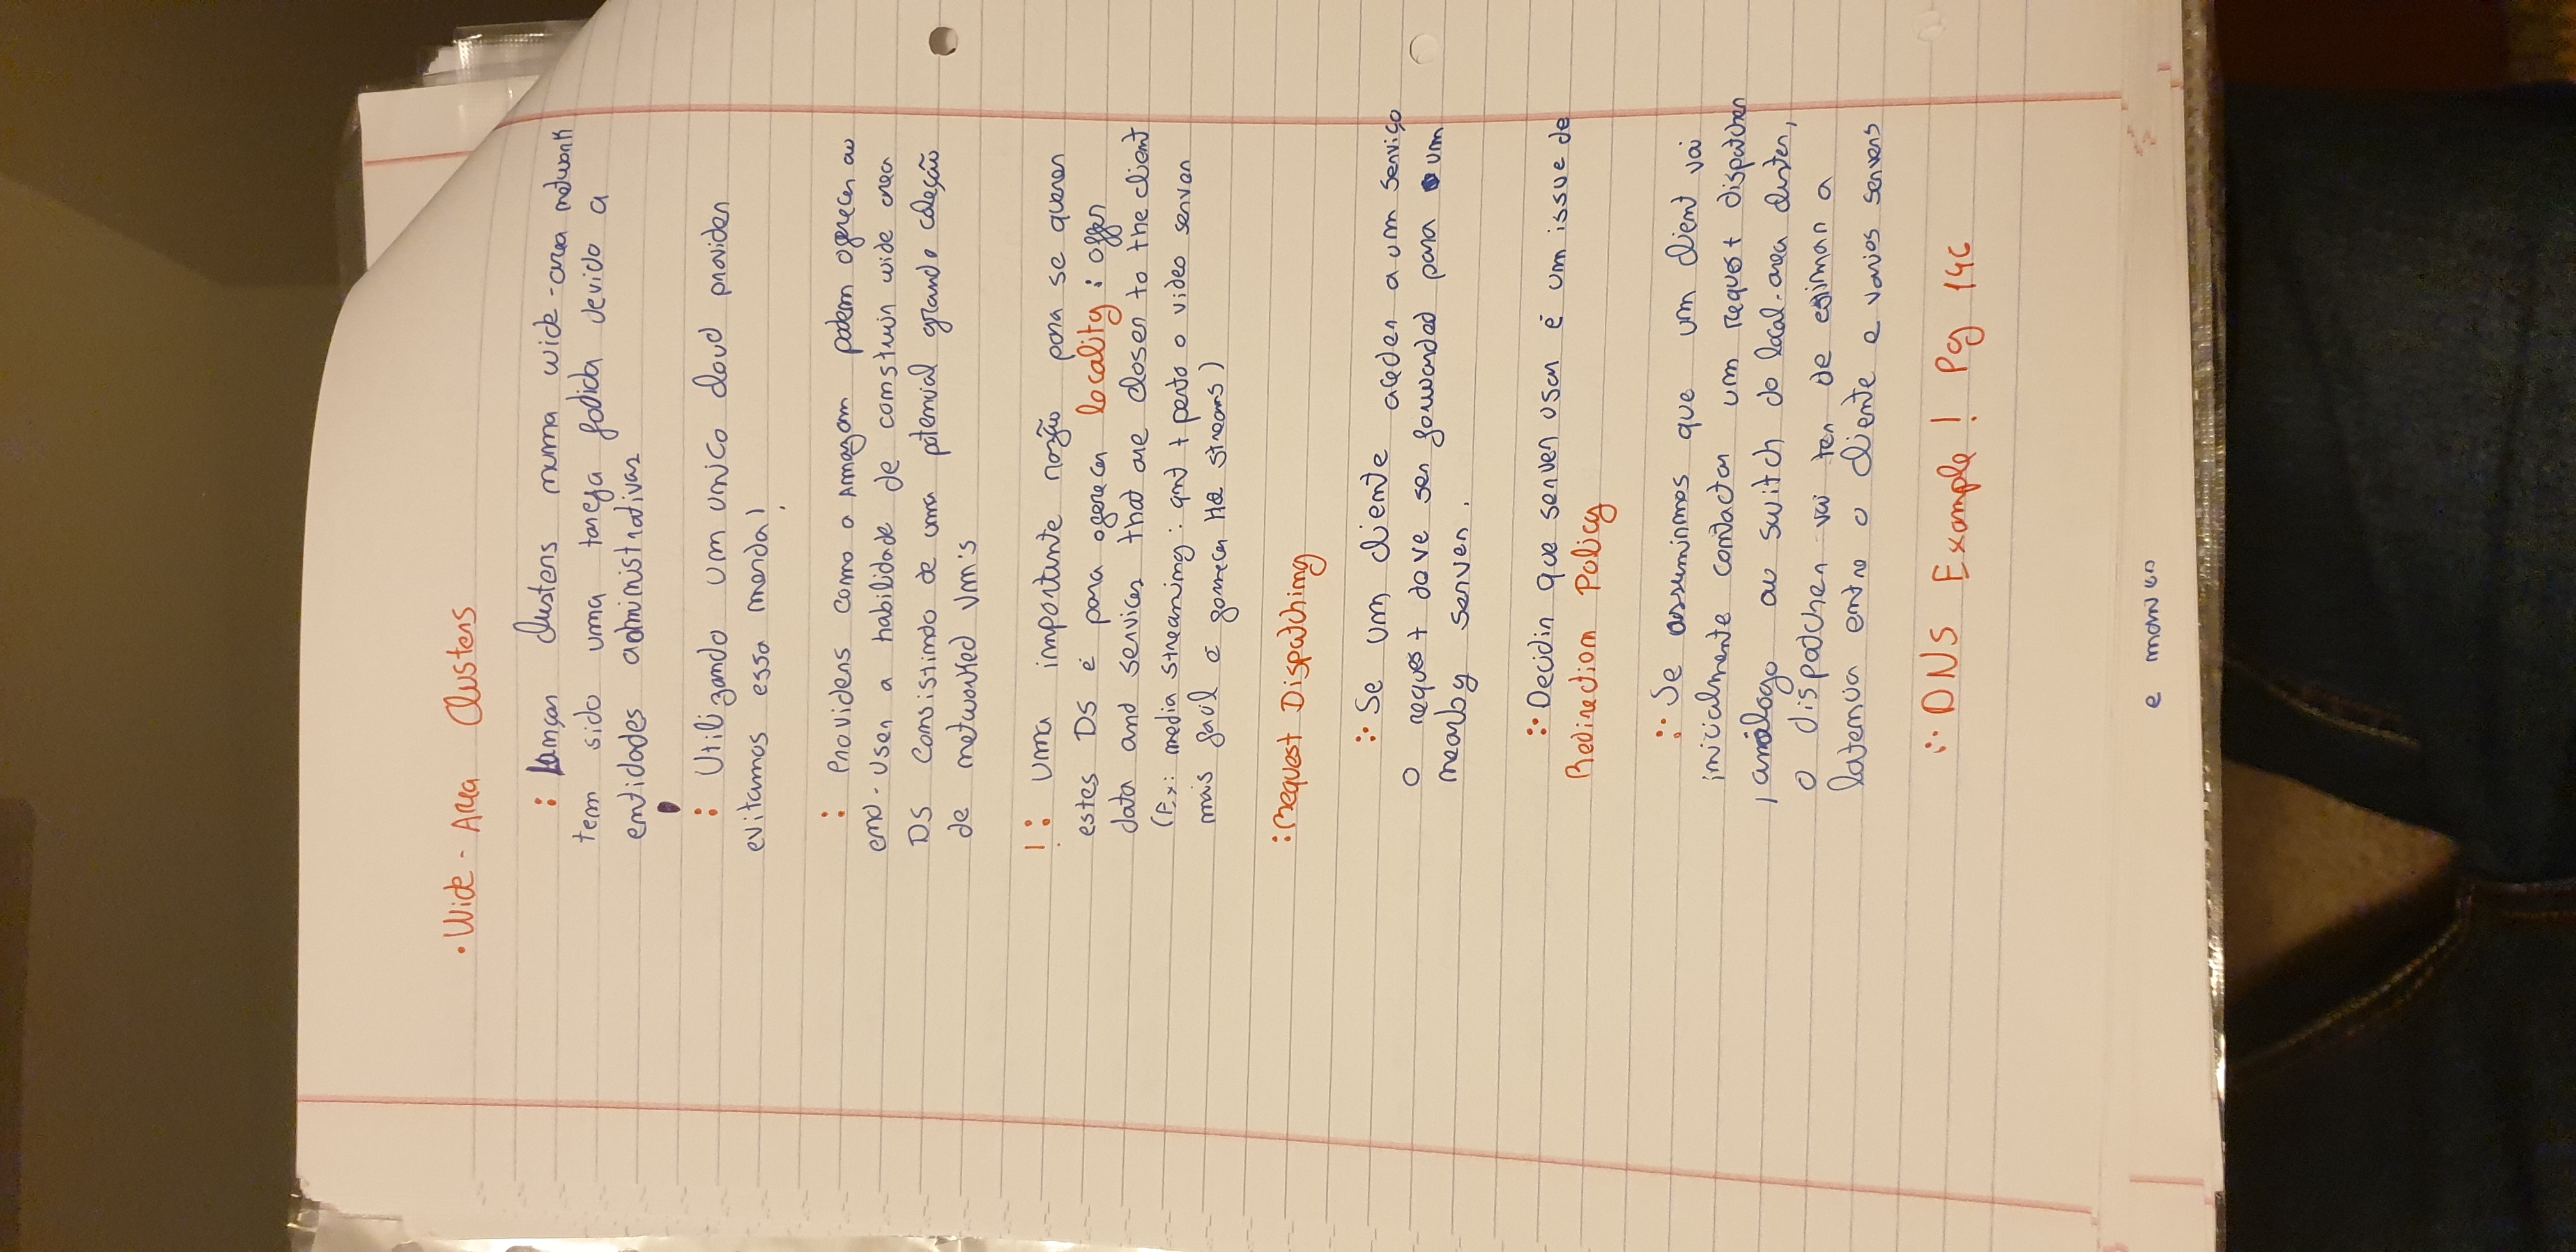 • Wide - Area Clusters
: Lançar clusters numa wide-area network
tem sido uma tarefa fodida devido a
entidades administrativas
: Utilizando um unico cloud provider
evitamos essa merda!
: Providers como a Amazon podem oferecer ao
end-user a habilidade de construir wide area
DS consistindo de uma potencial grande coleção
de networked VM's
! : Uma importante razão para se querer
estes DS é para oferecer locality : offer
data and services that are closer to the client
(Ex: media streaming: qnt + perto o video server
mais facil é fornecer HQ streams)
: Request Dispatching
:· Se um cliente aceder a um serviço
o request deve ser forwarded para um
nearby server.
:· Decidir que server usar é um issue de
Redirection Policy
:· Se assumirmos que um client vai
inicialmente contactar um request dispatcher
, análogo ao switch do local-area cluster,
o dispatcher vai ter de estimar a
latencia entre o cliente e varios servers
:· DNS Example! Pg 146
e